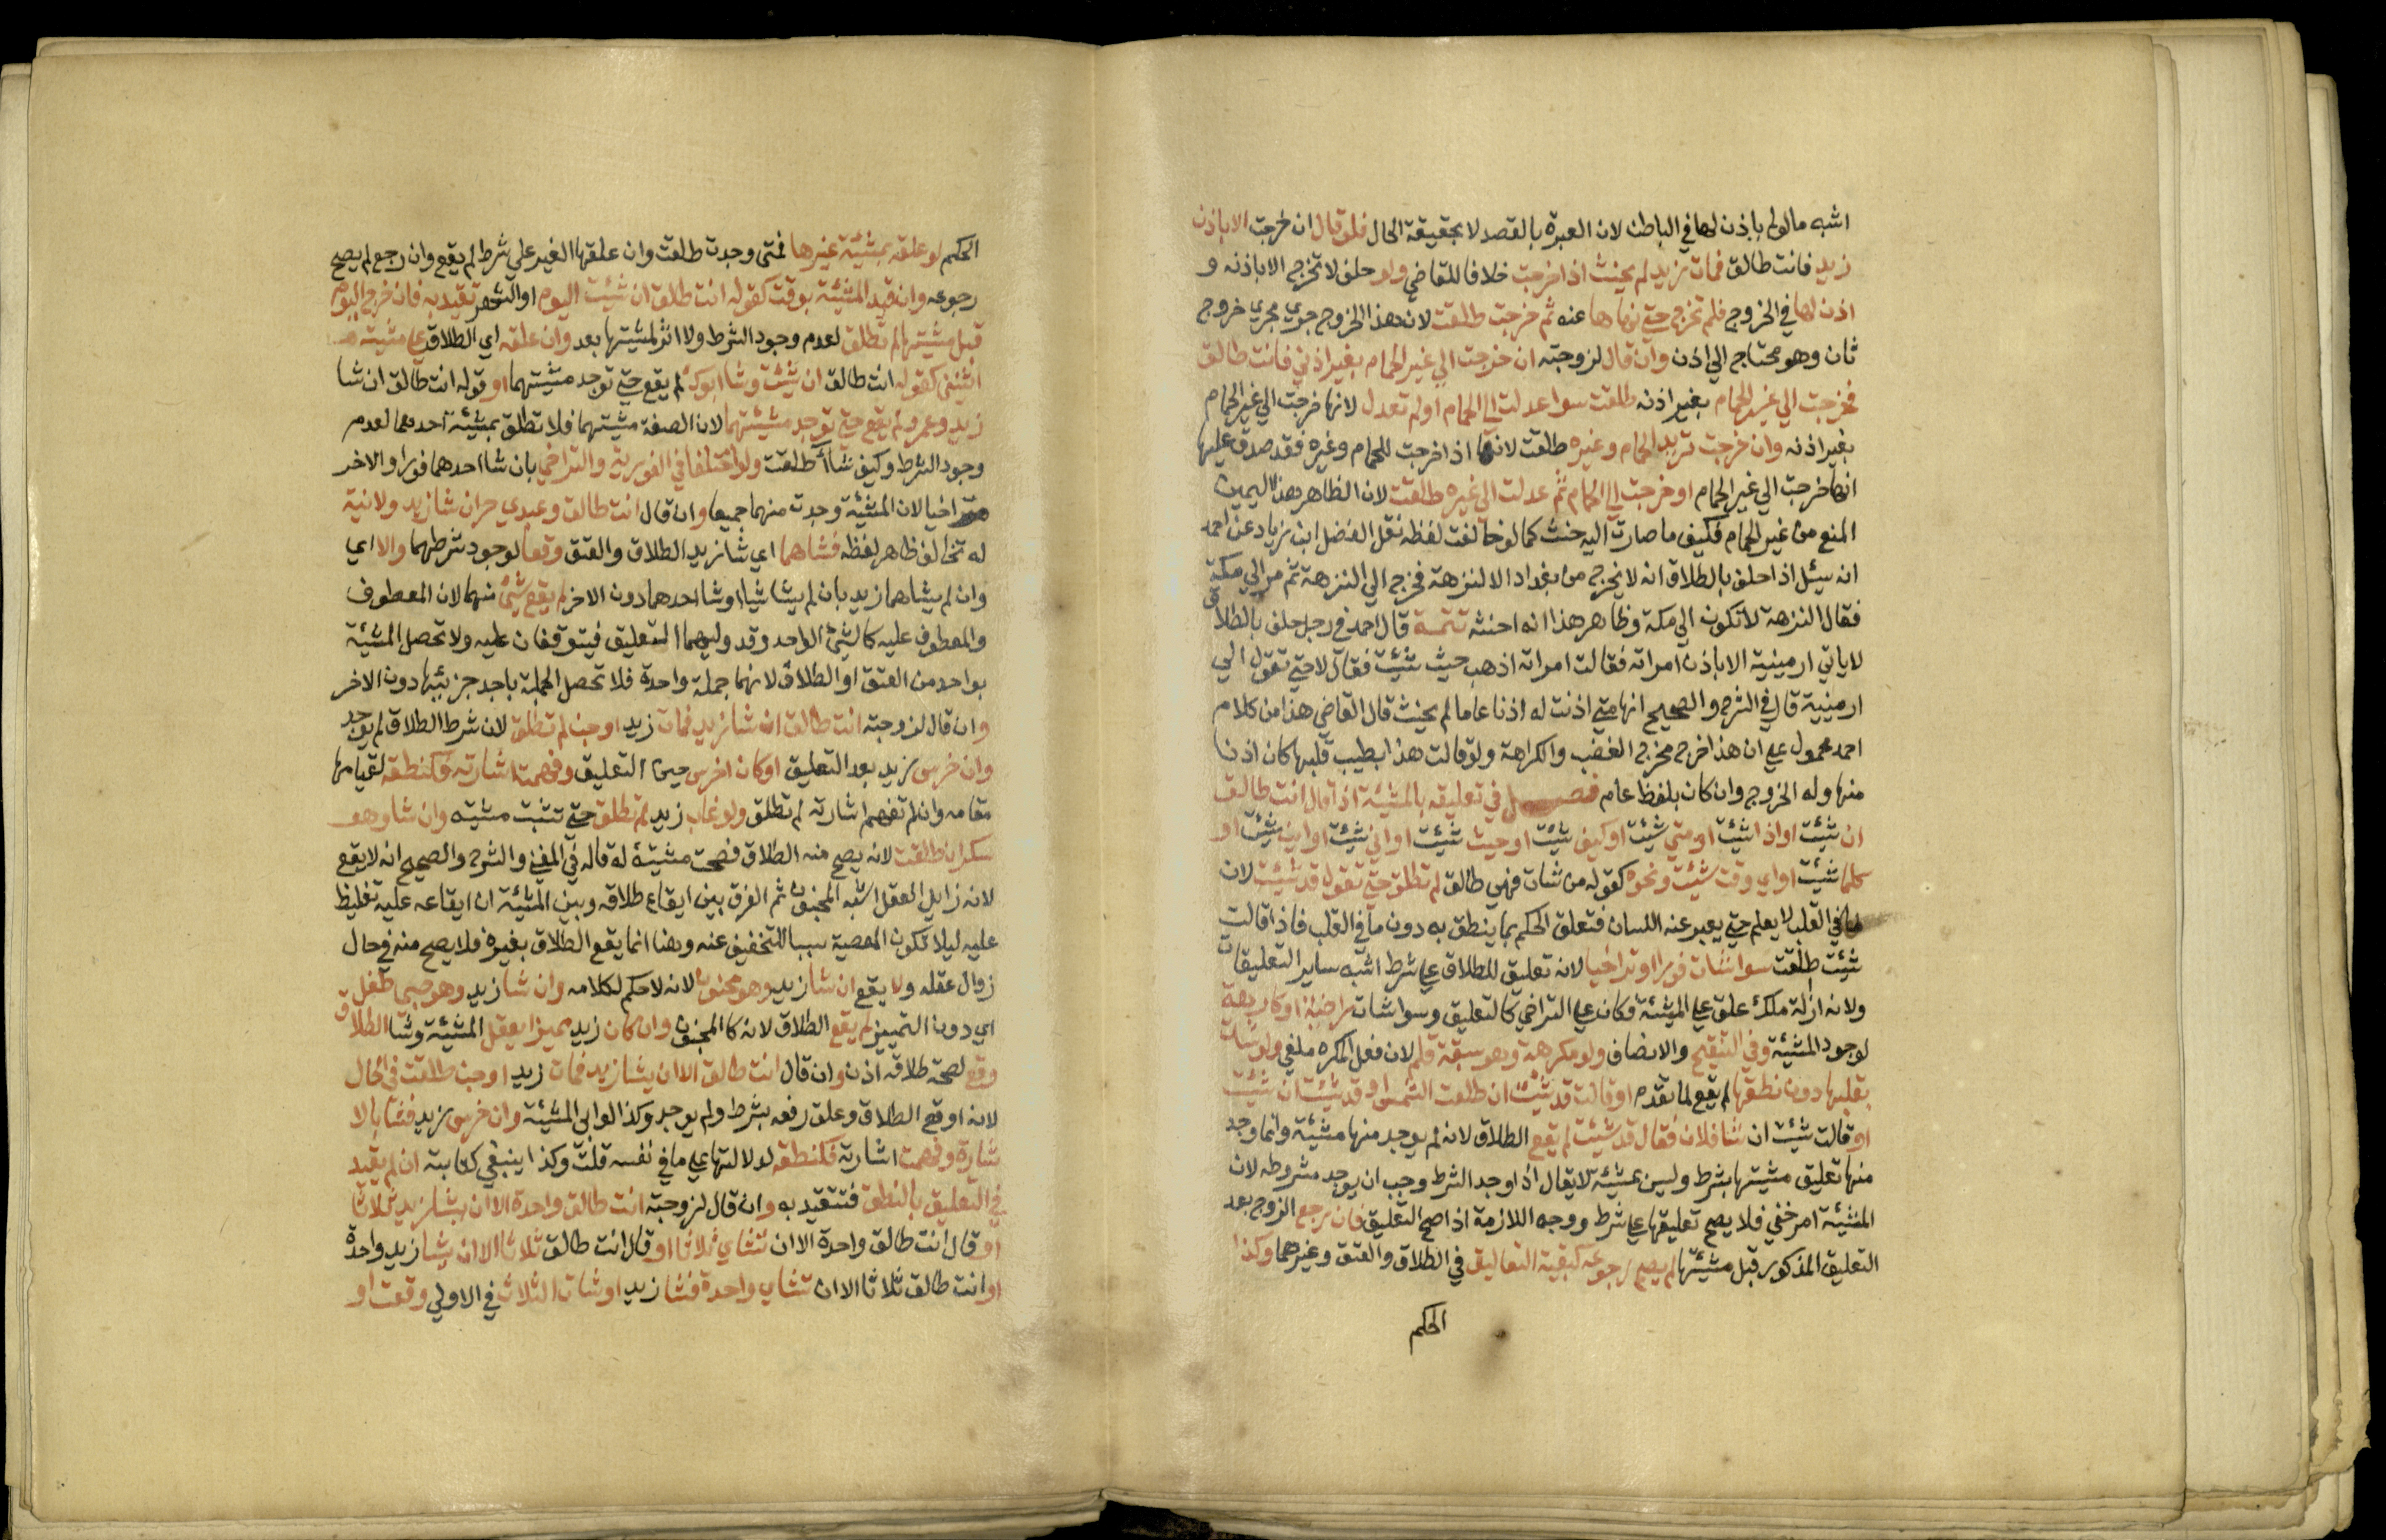 اشبه مالو لم ياذن لها في الباطن لان العبرة بالقصد لا بحقيقة الحال فلو قال ان خرجت الا باذن
زيد فانت طالق فمات زيد لم يحنث اذا خرجت خلافا للقاضي ولو حلف لا تخرج الا باذنه و
اذن لها في الخروج فلم تخرج حتى نهاها عنه ثم خرجت طلقت لان هذا الخروج جري مجري خروج
ثان وهو محتاج الي اذن وان قال لزوجته ان خرجت الي غير الحمام بغير اذني فانت طالق
فخرجت الي غير الحمام بغير اذنه طلقت سوا عدلت الي الحمام او لم تعدل لانها خرجت الي غير الحمام
بغير اذنه وان خرجت تريد الحمام وغيره طلقت لانها اذا خرجت للحمام وغيره فقد صدق عليها
انها خرجت الي غير الحمام او خرجت الي الحمام ثم عدلت الي غيره طلقت لان الظاهر هذا اليمين
المنع من غير الحمام فكيف ما صارت اليه حنث كما لو خالفت لفظه نقل الفضل ابن زياد عن احمد
انه سيئل اذا حلف بالطلاق انه لا يخرج من بغداد الا لنزهة فخرج الي النزهة ثم مر الي مكة
فقال النزهة لا تكون الي مكة وظاهر هذا انه احنثه تتمة قال احمد في رجل حلف بالطلاق
لا ياتي ارمينية الا باذن امراته فقالت امراته اذهب حيث شئت فقال لا حتى تقول الي
ارمينية قال في الشرح والصحيح انها متي اذنت له اذنا عاما لم يحنث قال القاضي هذا من كلام
احمد محمول علي ان هذا خرج مخرج الغضب والكراهة ولو قالت هذا بطيب قلبها كان اذنا
منها وله الخروج وان كان بلفظ عام فصل في تعليقه بالمشيئة اذا قال انت طالق
ان شئت او اذا شئت او متي شئت او كيف شئت او حيث شئت او اني شئت او اين شئت او
كلما شئت او اي وقت شئت ونحوه كقوله من شات فهي طالق لم تطلق حتى تقول قد شئت لان
ما في القلب لا يعلم حتى يعبر عنه اللسان فتعلق الحكم بما ينطق به دون ما في القلب فاذا قالت
شئت طلقت سوا شات فورا او تراخيا لانه تعليق للطلاق علي شرط اشبه ساير التعليقات
ولانه ازلة ملك علق علي المشئة فكان علي التراخي كالتعليق وسوا شات راضية او كارهة
لوجود المشئة وفي التنقيح والانصاف ولو مكرهة وهو سبقة قلم لان فعل المكره ملغي ولو شات
بقلبها دون نطقها لم يقع لما تقدم او قالت قد شئت ان طلعت الشمس او قد شئت ان شئت
او قالت شئت ان شا فلان فقال قد شئت لم يقع الطلاق لانه لم يوجد منها مشئة وانما وجد
منها تعليق مشيتها بشرط وليس بمشئة لا يقال اذا وجد الشرط وجب ان يوجد مشروطه لان
المشئة امر خفي فلا يصح تعليقها علي شرط ووجه الملازمة اذا صح التعليق فان رجع الزوج بعد
التعليق المذكور قبل مشئتها لم يصح رجوعه كبقية التعاليق في الطلاق والعتق وغيرهما وكذا
الحكم
الحكم لو علقه بمشئة غيرها فمتي وجدت طلقت وان علقها الغير علي شرط لم يقع وان رجع لم يصح
رجوعه وان قيد المشئة بوقت كقوله انت طلق ان شئت اليوم او الشهر تقيد به فان خرج اليوم
قبل مشيتها لم تطلق لعدم وجود الشرط ولا اثر لمشيتها بعد وان علقه اي الطلاق علي مشيئة
اثنين كقوله انت طالق ان شئت وشا ابوك لم يقع حتى توجد مشيتهما او قوله انت طالق ان شا
زيد وعمرو لم يقع حتى توجد مشئتهما لان الصفة مشيتهما فلا تطلق بمشئة احدهما لعدم
وجود الشرط وكيف شاآ طلقت ولو اختلفا في الفورية والتراخي بان شا احدهما فورا والاخر
متراخيا لان المشئة وجدت منهما جميعا وان قال انت طالق وعبدي حر ان شا زيد ولا نية
له تخالف ظاهر لفظه فشاهما اي شا زيد الطلاق والعتق وقعا لوجود شرطهما والا اي
وان لم يشاهما زيد بان لم يشا شيا او شا احدهما دون الاخر لم يقع شئ منهما لان المعطوف
والمعطوف عليه كالشئ الواحد وقد وليهما التعليق فيتوقفان عليه ولا تحصل المشئة
بواحد من العتق او الطلاق لانهما جملة واحدة فلا تحصل الجملة باحد جزئيها دون الاخر
وان قال لزوجته انت طالق ان شا زيد فمات زيد او جن لم تطلق لان شرط الطلاق لم يوجد
وان خرس زيد بعد التعليق او كان اخرس حين التعليق وفهمت اشارته فكنطقه لقيامها
مقامه وان لم تفهم اشارته لم تطلق ولو غاب زيد لم تطلق حتى تثبت مشيته وان شا وهو
سكران طلقت لانه يصح منه الطلاق فصحت مشيئة له قاله في المغني والشرح والصحيح انه لا يقع
لانه زايل العقل اشبه المجنون ثم الفرق بين ايقاع طلاقه وبين المشئة ان ايقاعه عليه تغليظ
عليه ليلا تكون المعصية سببا للتخفيف عنه وهنا انما يقع الطلاق بغيره فلا يصح منه في حال
زوال عقله ولا يقع ان شا زيد وهو مجنون لانه لا حكم لكلامه وان شا زيد وهو صبي طفل
اي دون التمييز لم يقع الطلاق لانه كالمجنون وان كان زيد مميزا يعقل المشئة وشا الطلاق
وقع لصحة طلاقه اذن وان قال انت طالق الا ان يشا زيد فمات زيد او جن طلقت في الحال
لانه اوقع الطلاق وعلق رفعه بشرط ولم يوجد وكذا لو ابي المشئة وان خرس زيد فشا بالا
شارة وفهمت اشارته فكنطقه لدلالتها علي ما في نفسه قلت وكذا ينبغي كتابته ان لم يقيد
في التعليق بالنطق فتتقيد به وان قال لزوجته انت طالق واحدة الا ان يشا زيد ثلاثا
او قال انت طالق واحدة الا ان تشاي ثلاثا او قال انت طالق ثلاثا الا ان يشا زيد واحدة
او انت طالق ثلاثا الا ان تشاي واحدة فشا زيد او شات الثلاث في الاولي وقعت او